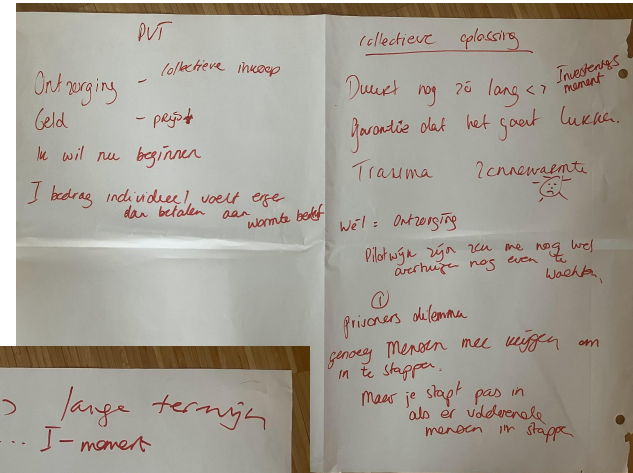 PVT
Ontzorging - collectieve inkoop
Geld - prijs
Ik wil nu beginnen
I bedrag individueel voelt erger
dan betalen aan warmte bedrijf
collectieve oplossing
Duurt nog zo lang <> Investerings
moment
Garantie dat het gaat lukken.
Trauma Zonnewarmte
Wél = Ontzorging
Pilotwijk zijn zou me nog wel
overtuigen nog even te
wachten.
1
prisoners dilemma
genoeg mensen mee krijgen om
in te stappen.
Maar je stapt pas in
als er voldoende
mensen in stappen
lange termijn
... I-moment